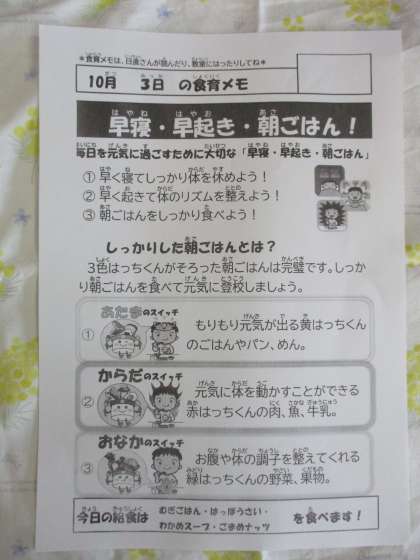 ＊食育メモは、日直さんが読んだり、教室にはったりしてね＊
10月　3日　の食育メモ
早寝・早起き・朝ごはん！
毎日を元気に過ごすために大切な「早寝・早起き・朝ごはん」
① 早く寝てしっかり体を休めよう！
② 早く起きて体のリズムを整えよう！
③ 朝ごはんをしっかり食べよう！
しっかりした朝ごはんとは？
3色はっちくんがそろった朝ごはんは完璧です。しっか
り朝ごはんを食べて元気に登校しましょう。
あたまのスイッチ
① もりもり元気が出る黄はっちくん
のごはんやパン、めん。
からだのスイッチ
② 元気に体を動かすことができる
赤はっちくんの肉、魚、牛乳。
おなかのスイッチ
③ お腹や体の調子を整えてくれる
緑はっちくんの野菜、果物。
今日の給食は むぎごはん・はっぽうさい・
わかめスープ・ごまめナッツ を食べます！